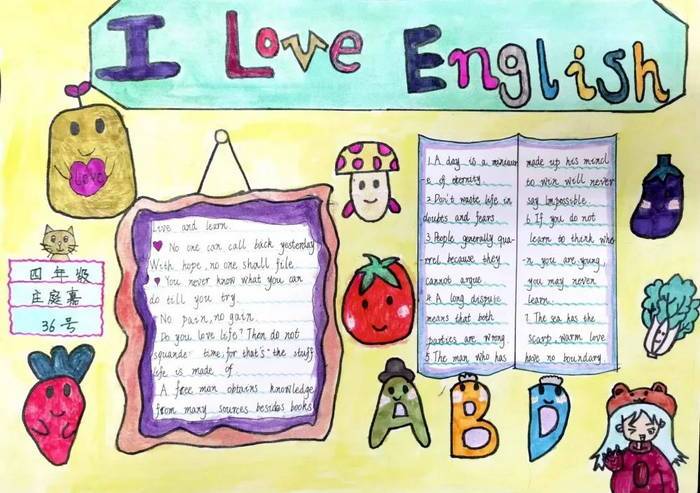 I Love English
love
四年级
庄庭嘉
36号
Live and learn
No one can call back yesterday
With hope, no one shall file
You never know what you can
do till you try
No pain, no gain.
Do you love life? Then do not
squande time, for that's the stuff
life is made of
A free man obtains knowledge
from many sources besides books
1. A day is a miniaur
-e of eternity
2. Don't waste life in
doubts and fears
3. People generally qua-
rrel because they
cannot argue
4. A long dispute
means that both
parties are wrong.
5. The man who has
made up his mind
to win will never
say impossible
6. If you do not
learn to think whe-
n you are young,
you may never
learn.
7. The sea has the
scarp, warm love
have no boundary.
A B D